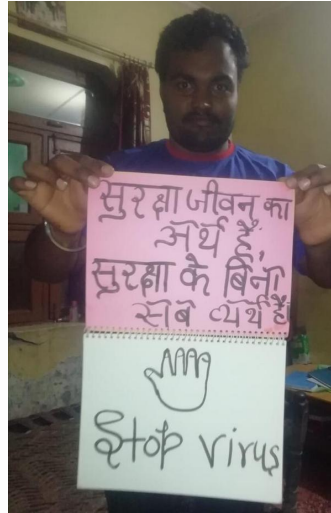 सुरक्षा जीवन का
अर्थ हैं,
सुरक्षा के बिना
सब व्यर्थ हैं।
Stop virus